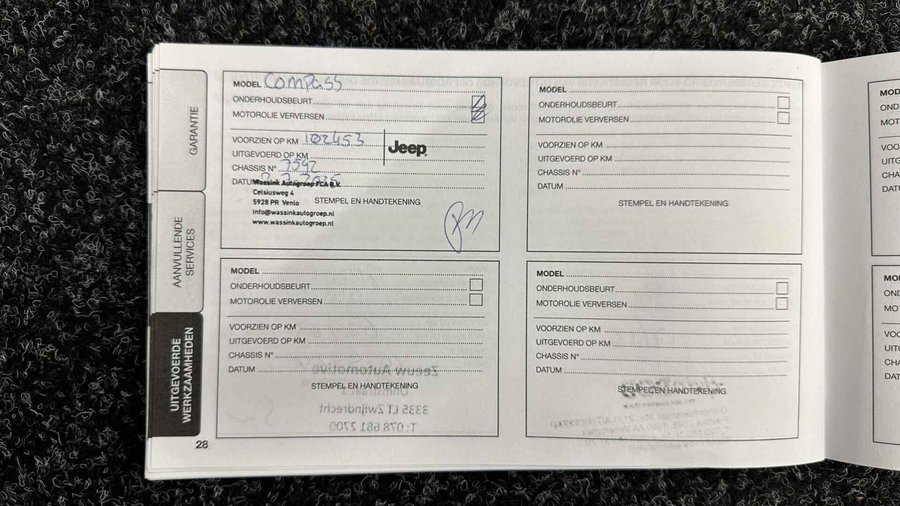 GARANTIE
AANVULLENDE
SERVICES
UITGEVOERDE
WERKZAAMHEDEN
MODEL Compass
ONDERHOUDSBEURT
MOTOROLIE VERVERSEN
VOORZIEN OP KM 102453
UITGEVOERD OP KM
CHASSIS N° 7592
DATUM
Jeep
Wassink Autogroep FCA B.V.
Celsiusweg 4
5928 PR Venlo
info@wassinkautogroep.nl
www.wassinkautogroep.nl
STEMPEL EN HANDTEKENING
MODEL
ONDERHOUDSBEURT
MOTOROLIE VERVERSEN
VOORZIEN OP KM
UITGEVOERD OP KM
CHASSIS N°
DATUM
STEMPEL EN HANDTEKENING
MODEL
ONDERHOUDSBEURT
MOTOROLIE VERVERSEN
VOORZIEN OP KM
UITGEVOERD OP KM
CHASSIS N°
DATUM
STEMPEL EN HANDTEKENING
Zeeuw Automotive
3335 LT Zwijndrecht
T: 078 681 2700
MODEL
ONDERHOUDSBEURT
MOTOROLIE VERVERSEN
VOORZIEN OP KM
UITGEVOERD OP KM
CHASSIS N°
DATUM
STEMPEL EN HANDTEKENING
28